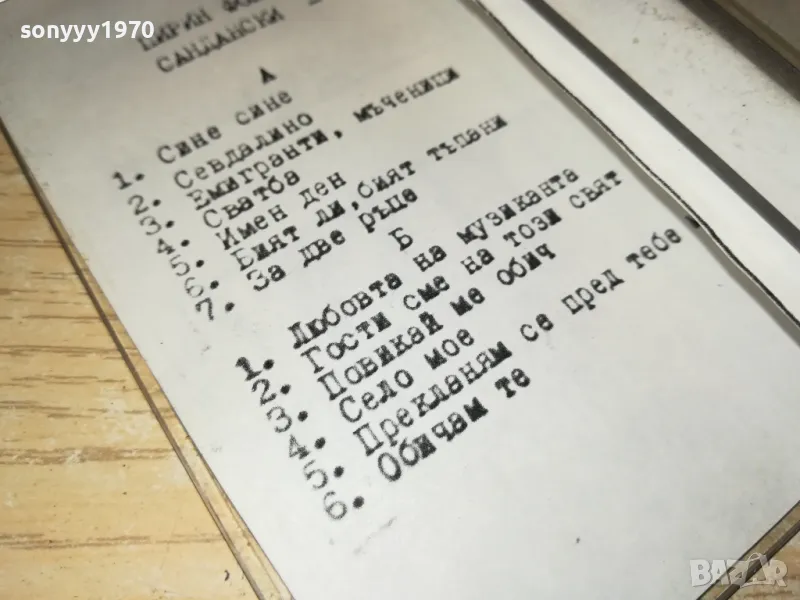 sonyyy1970
ПИРИН ФО
САНДАНСКИ
А
1. Сине сине
2. Севдалино
3. Емигранти, мъченици
4. Сватба
5. Имен ден
6. Бият ли,бият тъпани
7. За две ръце
Б
1. Любовта на музиканта
2. Гости сме на този свят
3. Повикай ме обич
4. Село мое
5. Прекланям се пред тебе
6. Обичам те
BAZAR